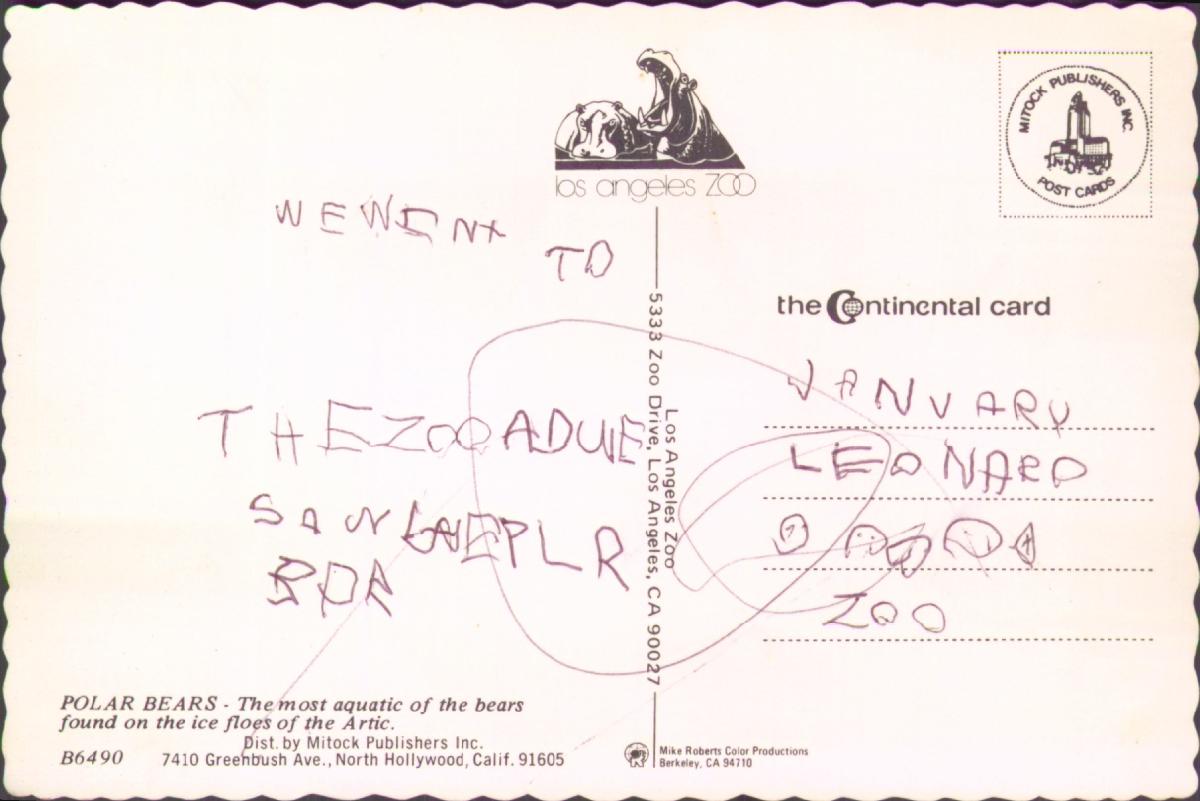 los angeles ZOO
MITOCK PUBLISHERS INC.
POST CARDS
WEWENT
TO
5333 Zoo Drive, Los Angeles, CA 90027
Los Angeles Zoo
the Continental card
THEZOOADWE
SAW
BDR
JANUARY
LEONARD
ZOO
POLAR BEARS - The most aquatic of the bears
found on the ice floes of the Artic.
Dist. by Mitock Publishers Inc.
B6490 7410 Greenbush Ave., North Hollywood, Calif. 91605
Mike Roberts Color Productions
Berkeley, CA 94710